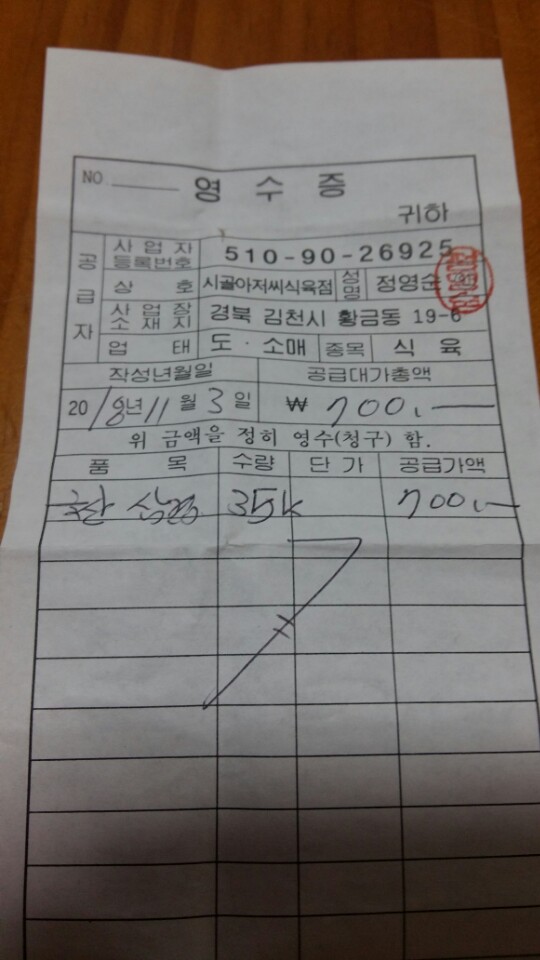 NO. 영 수 증
귀하
공급자
사업자등록번호 510-90-26925
상 호 시골아저씨식육점 성명 정영순
사업장소재지 경북 김천시 황금동 19-6
업 태 도·소매 종목 식 육
작성년월일 공급대가총액
2018년 11월 3일 ₩ 700,-
위 금액을 정히 영수(청구) 함.
품 목 수량 단 가 공급가액
35k 700,-